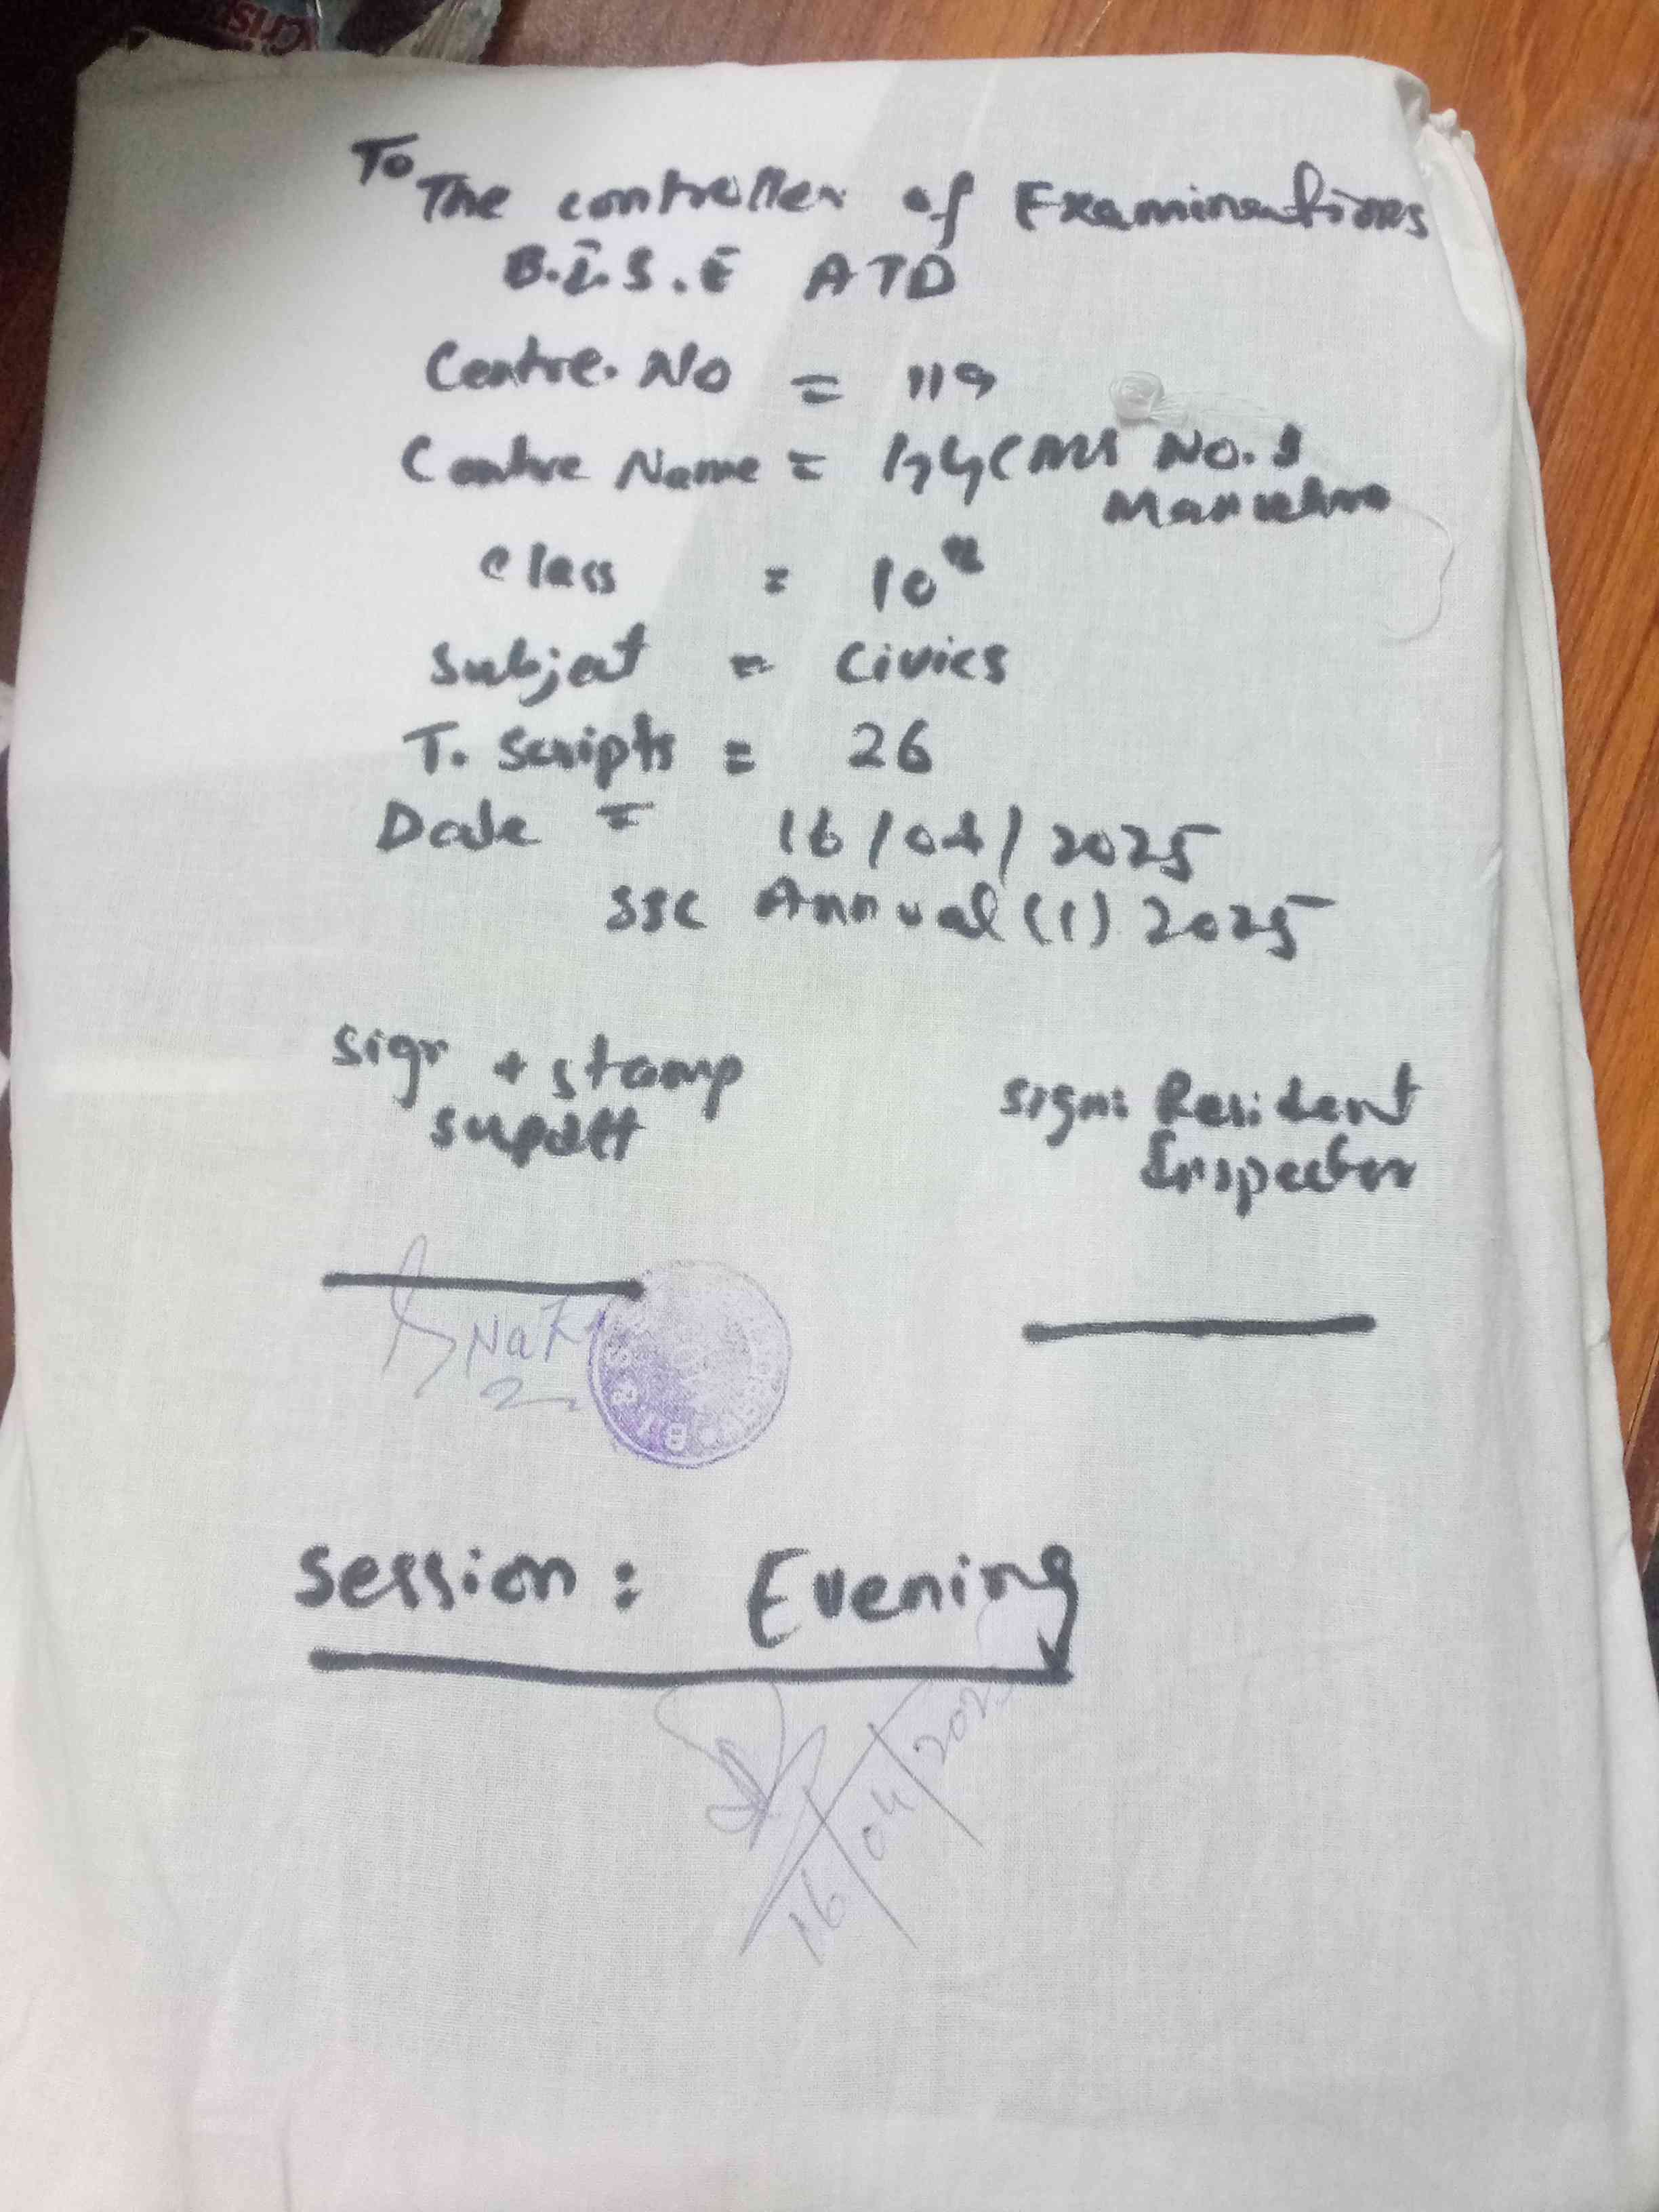 To
The controller of Examinations
B.I.S.E ATD
Centre. No = 119
Centre Name = GGCMS No. 1
class = 10th
Subject = Civics
T. Scripts = 26
Date = 16/04/2025
SSC Annual (1) 2025
Sign + stamp
Supdtt
Sign: Resident
Inspector
Session: Evening
16/04/2025